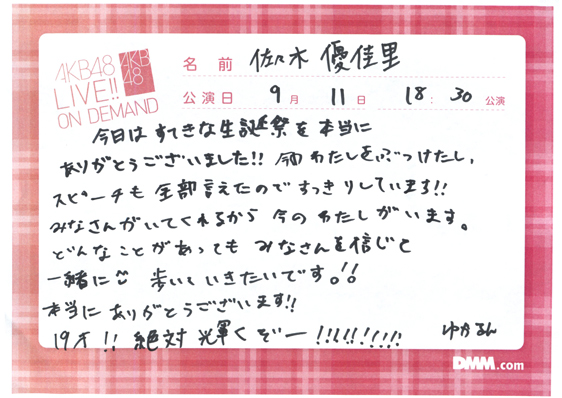 AKB48
LIVE!!
ON DEMAND
AKB
48
名前 佐々木 優佳里
公演日 9月 11日 18:30公演
今日は すてきな生誕祭を本当に
ありがとうございました!! 今の わたしをぶつけたし、
スピーチも 全部言えたので すっきりしています!!
みなさんがいてくれるから 今の わたしがいます。
どんなことがあっても みなさんを信じて
一緒に 歩いていきたいです。!!
本当に ありがとうございます!!
19才!! 絶対 輝くぞー!!!!!!!!
ゆかるん
DMM.com